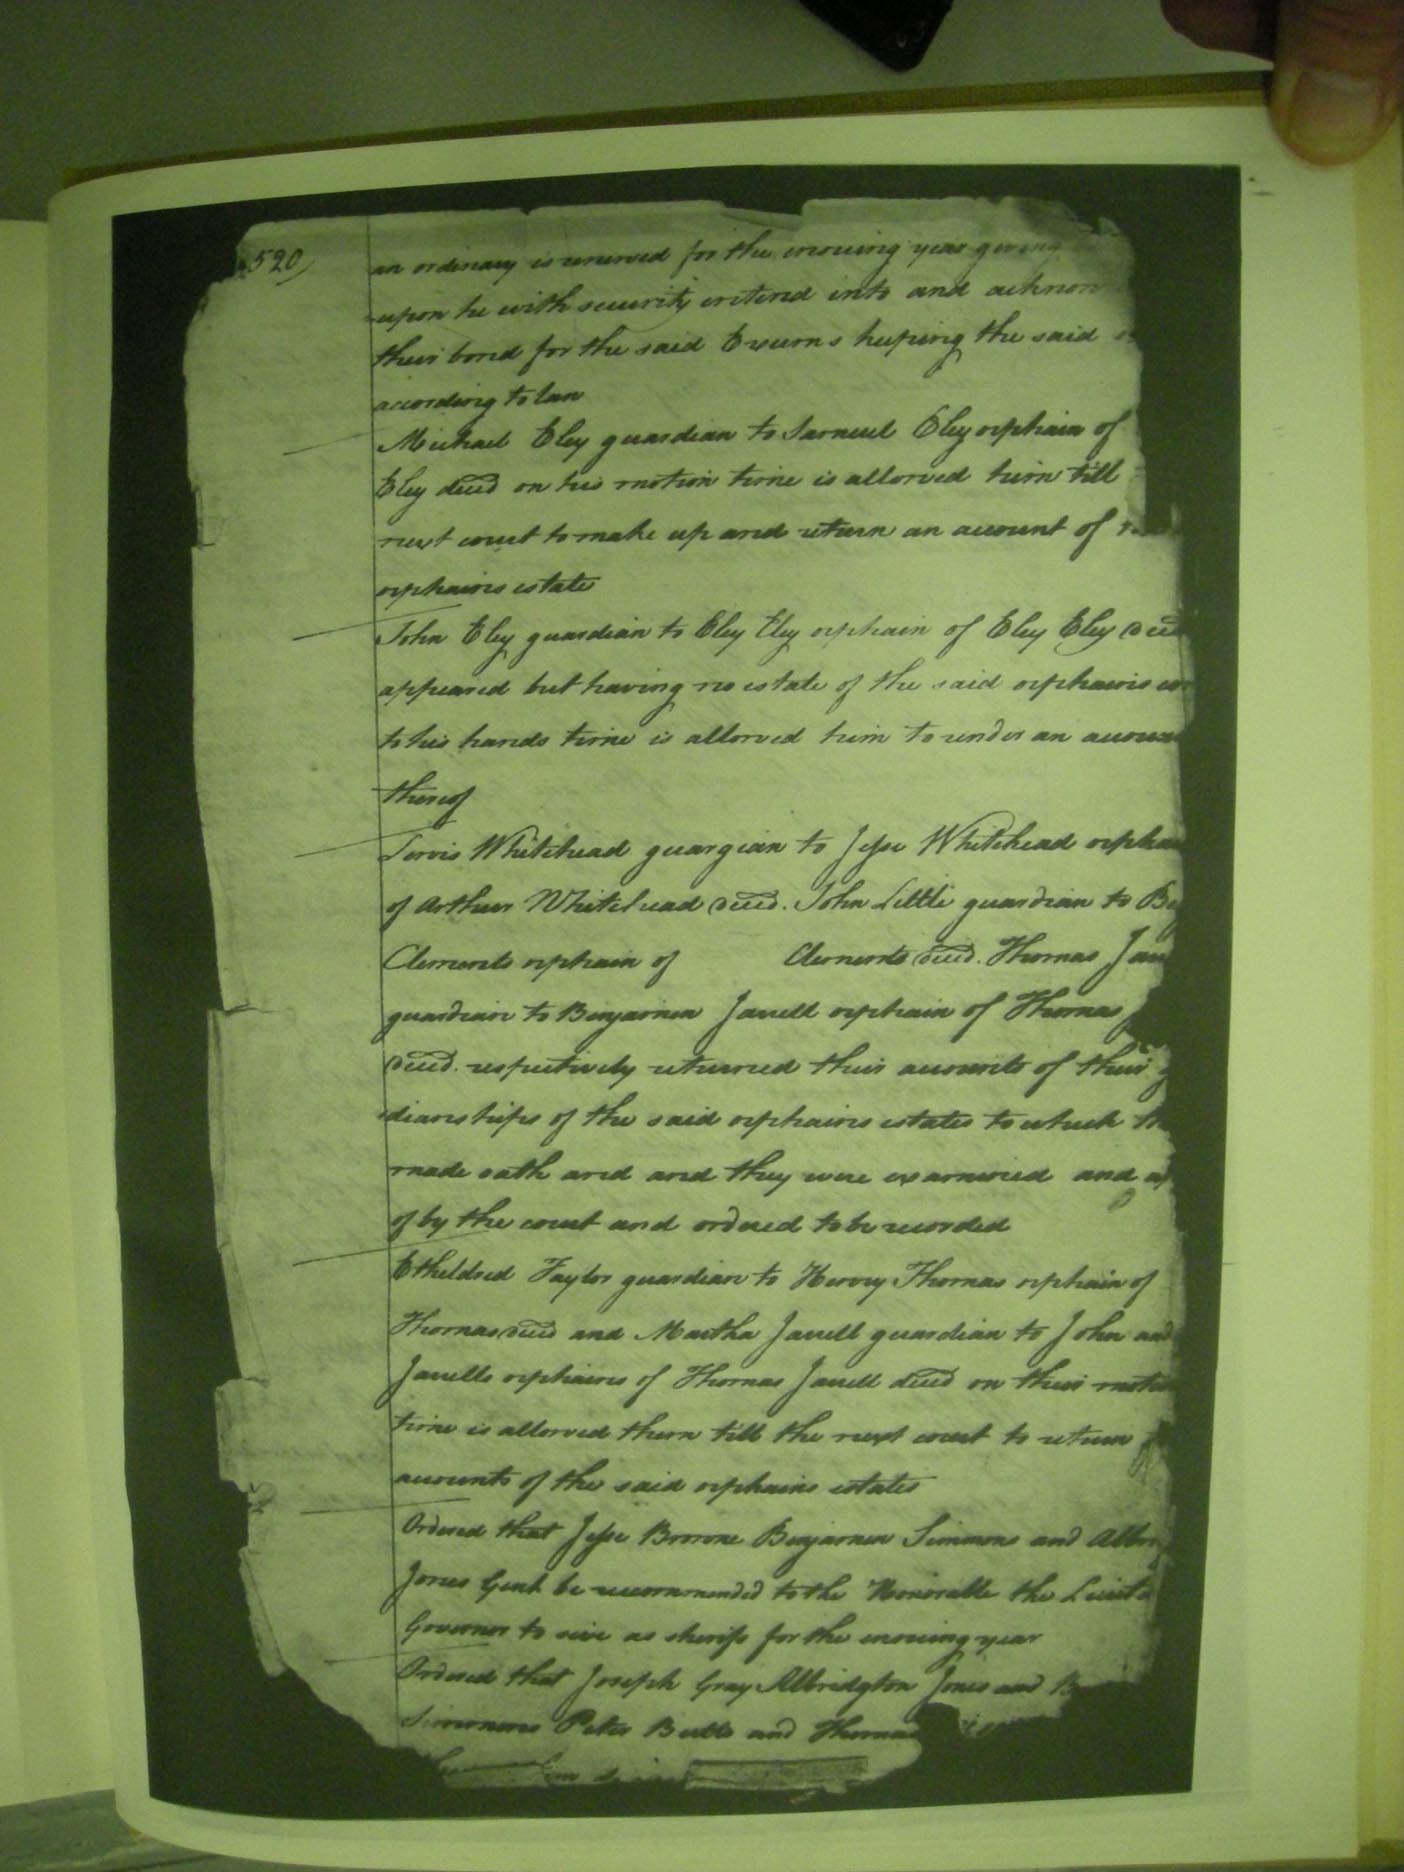 520
an ordinary is renewed for the ensuing year giving
upon he with security entered into and acknow
their bond for the said Exums keeping the said
according to law
Michael Eley guardian to Samuel Eley orphain of
Eley decd on his motion time is allowed him till
next court to make up and return an account of
orphains estate
John Eley guardian to Eley Eley orphain of Eley Eley decd
appeared but having no estate of the said orphains
to his hands time is allowed him to render an accoun
thereof
Whitehead guargian to Jesse Whitehead orpha
of Arthur Whitehead decd. John Little guardian to
Clements orphain of Clements decd. Thomas Jarr
guardian to Benjamin Jarrell orphain of Thomas
decd. respectively returned their accounts of their g
dianships of the said orphains estates to which th
made oath and and they were examined and a
of by the court and ordered to be recorded
Etheldred Taylor guardian to Henry Thomas orphain of
Thomas decd and Martha Jarrell guardian to John and
Jarrells orphains of Thomas Jarrell decd on their motion
time is allowed them till the next court to return
accounts of the said orphains estates
Ordered that Jesse Browne Benjamen Simmons and Albri
Jones Gent be recommended to the Honorable the Lieut
Governor to serve as sheriff for the ensuing year
Ordered that Joseph Gray Albridgton Jones and B
Simmons Peter Butts and Thomas